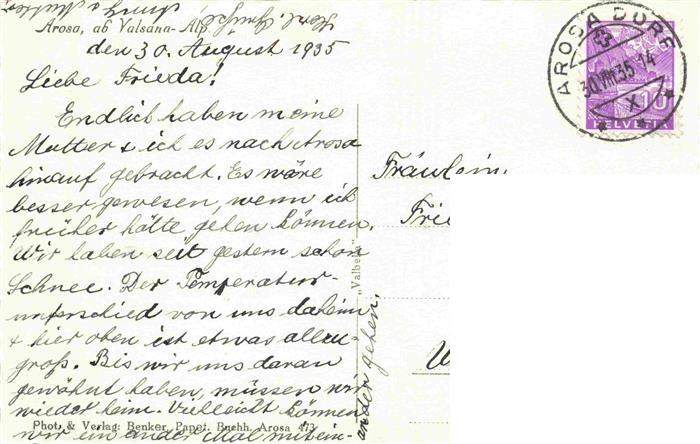 Arosa, ab Valsana-Alp.
den 30. August 1935
Liebe Frieda!
Endlich haben meine
Mutter & ich es nach Arosa
hinauf gebracht. Es wäre
besser gewesen, wenn ich
früher hätte gehen können.
Wir haben seit gestern schon
Schnee. Der Temperatur-
unterschied von uns daheim
& hier oben ist etwas allzu-
groß. Bis wir uns daran
gewöhnt haben, müssen wir
wieder heim. Vielleicht können
Phot. & Verlag: Benker, Papet. Buchh. Arosa 473
wir ein ander Mal mitein-
ander gehen.
"Valbella"
Fräulein
AROSA DORF
30.VIII.35.14
X
10
HELVETIA